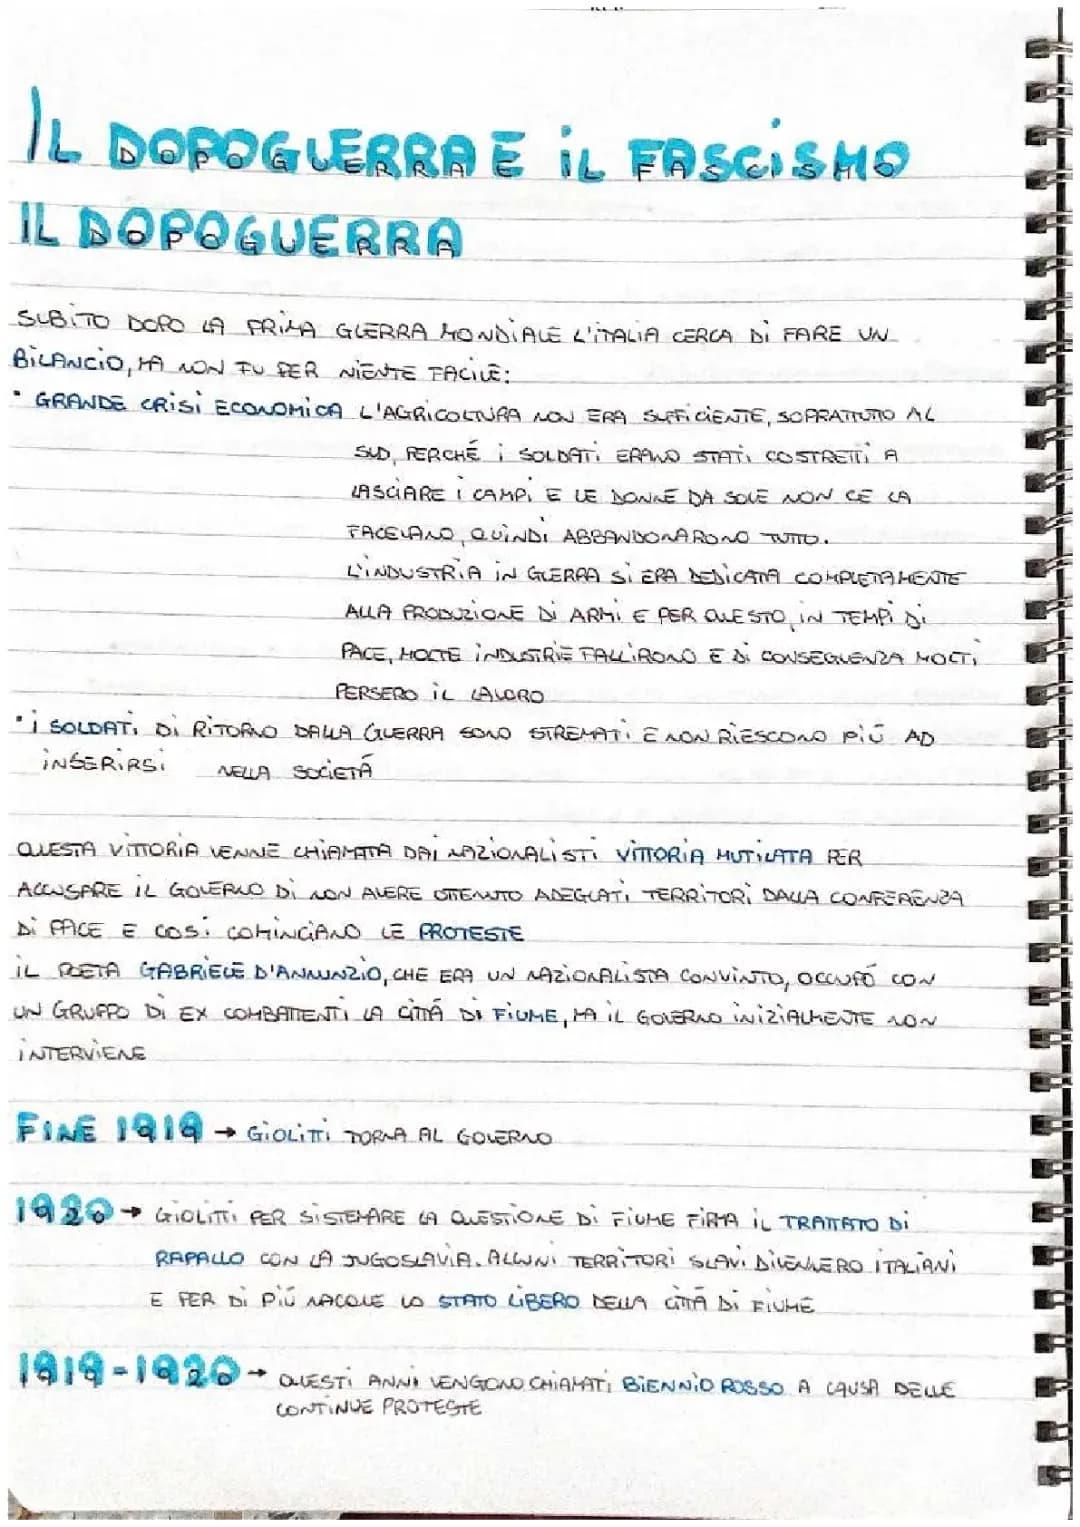 IL DOPOGUERRA E IL FASCISMO
IL DOPOGUERRA
SUBITO DOPO LA PRIMA GUERRA MONDIALE L'ITALIA CERCA DI FARE UN
BILANCIO, MA NON FU PER NIENTE FACILE:
• GRANDE CRISI ECONOMICA L'AGRICOLTURA NON ERA SUFFICIENTE, SOPRATTUTTO AL
SUD, PERCHÉ I SOLDATI ERANO STATI COSTRETTI A
LASCIARE I CAMPI E LE DONNE DA SOLE NON CE LA
FACEVANO, QUINDI ABBANDONARONO TUTTO.
L'INDUSTRIA IN GUERRA SI ERA DEDICATA COMPLETAMENTE
ALLA PRODUZIONE DI ARMI E PER QUESTO, IN TEMPI DI
PACE, MOLTE INDUSTRIE FALLIRONO E DI CONSEGUENZA MOLTI
PERSERO IL LAVORO
• I SOLDATI DI RITORNO DALLA GUERRA SONO STREMATI E NON RIESCONO PIÚ AD
INSERIRSI NELLA SOCIETÁ
QUESTA VITTORIA VENNE CHIAMATA DAI NAZIONALISTI VITTORIA MUTILATA PER
ACCUSARE IL GOVERNO DI NON AVERE OTTENUTO ADEGUATI TERRITORI DALLA CONFERENZA
DI PACE E COSÍ COMINCIANO LE PROTESTE
IL POETA GABRIELE D'ANNUNZIO, CHE ERA UN NAZIONALISTA CONVINTO, OCCUPÓ CON
UN GRUPPO DI EX COMBATTENTI LA CITTÁ DI FIUME, MA IL GOVERNO INIZIALMENTE NON
INTERVIENE
FINE 1919 → GIOLITTI TORNA AL GOVERNO
1920 → GIOLITTI PER SISTEMARE LA QUESTIONE DI FIUME FIRMA IL TRATTATO DI
RAPALLO CON LA JUGOSLAVIA. ALCUNI TERRITORI SLAVI DIVENNERO ITALIANI
E PER DI PIÚ NACQUE LO STATO LIBERO DELLA CITTÁ DI FIUME
1919-1920 → QUESTI ANNI VENGONO CHIAMATI BIENNIO ROSSO A CAUSA DELLE
CONTINUE PROTESTE